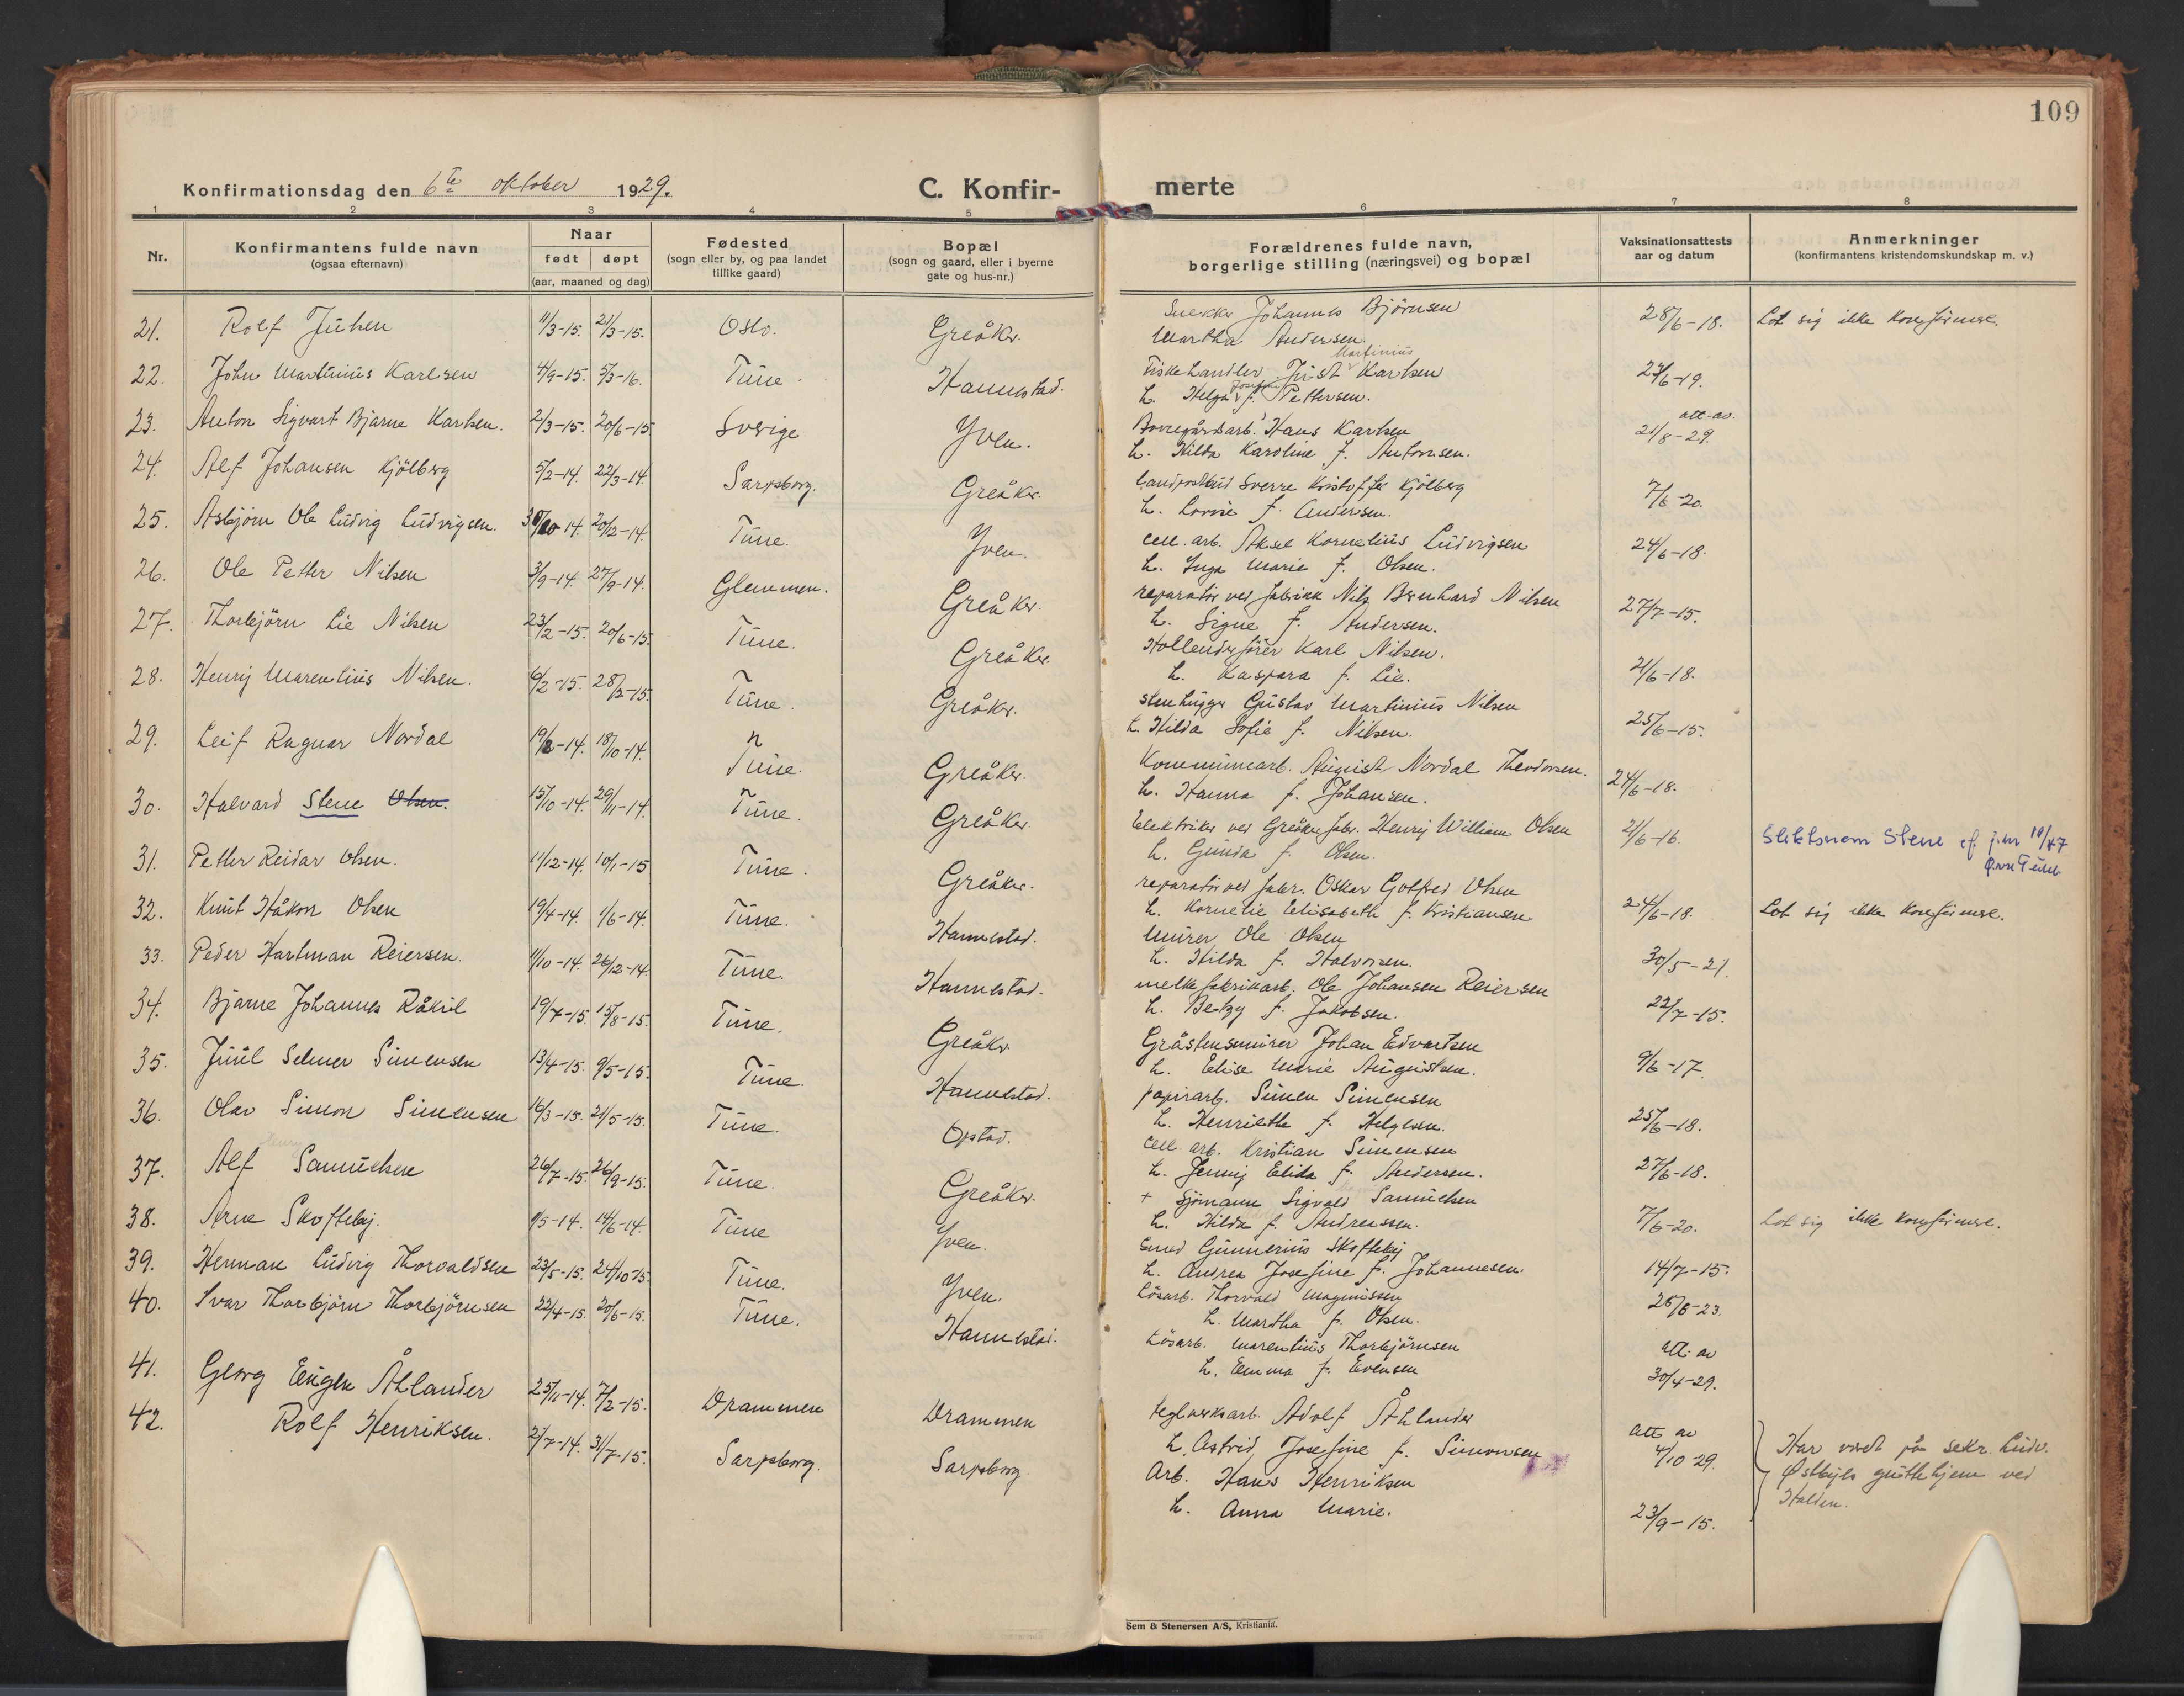 109
Konfirmationsdag den 6te oktober 1929. C. Konfir- merte
1 2 3 4 5 6 7 8
Nr.
Konfirmantens fulde navn
(ogsaa efternavn)
Naar
født døpt
(aar, maaned og dag)
Fødested
(sogn eller by, og paa landet
tillike gaard)
Bopæl
(sogn og gaard, eller i byerne
gate og hus-nr.)
Forældrenes fulde navn,
borgerlige stilling (næringsvei) og bopæl
Vaksinationsattests
aar og datum
Anmerkninger
(konfirmantens kristendomskundskap m. v.)
21. Rolf Juhen 11/3-15. 21/3-15. Oslo. Greåker. Snekker Johannes Björnsen
Martha Andersen. 28/6-18. Lot sig ikke konfirmere.
22. John Martinius Karlsen 4/9-15. 5/3-16. Tune. Hannestad. Fiskehandler Just Martinius Karlsen
h. Helga Josefine f. Pettersen. 23/6-19.
23. Anton Sigvart Bjarne Karlsen. 2/3-15. 20/6-15 Sverige Yven. Borregårdsarb. Hans Karlsen
h. Hilda Karoline f. Antonsen. att. av. 21/8-29.
24. Alf Johansen Kjölberg 5/2-14. 22/3-14. Sarpsborg. Greåker. Landpostbud Sverre Kristoffer Kjölberg
h. Lovise f. Andersen. 7/6-20.
25. Asbjörn Ole Ludvig Ludvigsen. 30/10-14. 20/12-14. Tune. Yven. cell. arb. Aksel Kornelius Ludvigsen
h. Inga Marie f. Olsen. 24/6-18.
26. Ole Petter Nilsen 3/9-14. 27/9-14. Glemmen. Greåker. reparatör ved fabrikk Nils Bernhard Nilsen
h. Signe f. Andersen. 27/7-15.
27. Thorbjörn Lie Nilsen 23/2-15. 20/6-15. Tune. Greåker. Hollenderförer Karl Nilsen.
h. Kaspara f. Lie. 21/6-18.
28. Henrij Marentius Nilsen. 6/2-15. 28/3-15. Tune. Greåker. stenhugger Gustav Martinius Nilsen
h. Hilda Sofie f. Nilsen. 25/6-15.
29. Leif Ragnar Nordal 19/8-14. 18/10-14. Tune. Greåker. Kommunearb. August Nordal Theodorsen.
h. Hanna f. Johansen. 24/6-18.
30. Halvard Stene Olsen. 15/10-14. 29/11-14. Tune. Greåker. Elektriker ved Greåker fabr. Henrij William Olsen
h. Gunda f. Olsen. 21/6-16. Slektsnavn Stene cf. j.nr 10/47
31. Petter Reidar Olsen. 11/12-14. 10/1-15 Tune. Greåker. reparatör ved fabr. Oskar Gotfred Olsen
h. Kornelie Elisabeth f. Kristiansen 24/6-18. Lot sig ikke konfirmere.
32. Knut Håkon Olsen 19/4-14. 1/6-14. Tune. Hannestad. Murer Ole Olsen
h. Hilda f. Halvorsen. 30/5-21.
33. Peder Hartman Reiersen. 11/10-14. 26/12-14. Tune. Hannestad. melkefabrikarb. Ole Johansen Reiersen
h. Betzy f. Jakobsen. 22/7-15.
34. Bjarne Johannes Råkil 19/7-15. 15/8-15. Tune. Greåker Gråstensmurer Johan Edvartsen
h. Elise Marie Augustsen. 9/6-17.
35. Juul Selmer Simensen 13/4-15. 9/5-15. Tune. Hannestad. papirarb. Simen Simensen
h. Henriette f. Helgesen. 25/6-18.
36. Olav Simon Simensen 16/3-15. 21/5-15. Tune. Opstad. cell. arb. Kristian Simensen
h. Jennij Elida f. Andersen. 27/6-18.
37. Alf Henry Samuelsen 26/7-15. 26/9-15. Tune. Greåker. + Sjömann Sigvald Samuelsen
h. Hilda f. Andreassen. 7/6-20. Lot sig ikke konfirmere.
38. Arne Skoftebÿ. 1/5-14. 14/6-14. Tune Yven. Gunnerius Skoftebÿ
h. Andrea Josefine f. Johannesen. 14/7-15.
39. Herman Ludvig Thorvaldsen 23/5-15. 24/10-15. Tune. Yven. Lösarb. Thorvald Magnussen
h. Martha f. Olsen. 26/6-23.
40. Ivar Thorbjörn Thorbjörnsen 22/4-15. 20/6-15. Tune. Hannestad. Lösarb. Marentius Thorbjörnsen
h. Emma f. Evensen att. av 30/4-29.
41. Georg Eugen Åhlander 25/11-14. 7/2-15. Drammen Drammen teglverksarb. Adolf Åhlander
h. Astrid Josefine f. Simonsen att. av 4/10-29. Har vært på sekr. Ludv.
Østbyes guttehjem ved
Halden.
42. Rolf Henriksen. 2/7-14. 31/7-15. Sarpsborg. Sarpsborg. Arb. Hans Henriksen
h. Anna Marie. 23/9-15.
Sem & Stenersen A/S, Kristiania.